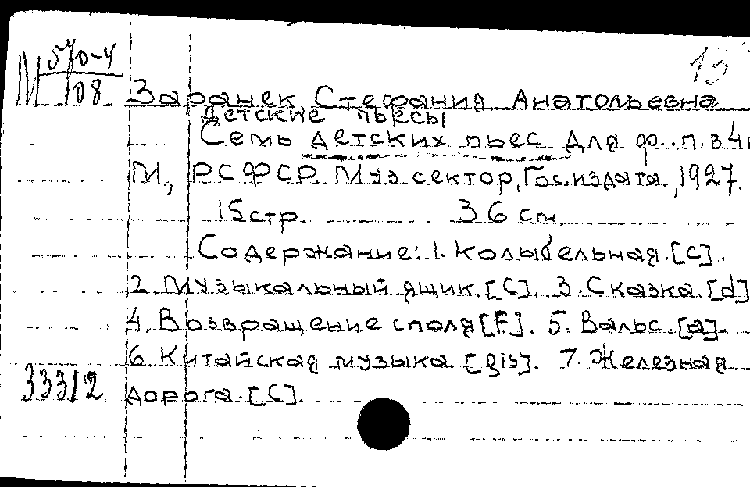 М 570-4
108
13
Заранек Стефания Анатольевна
Детские пьесы
Семь детских пьес для ф.-п. з4
М., РСФСР. Муз.сектор, Гос.издата, 1927.
15 стр. 36 см.
Содержание: 1. Колыбельная. [C].
2. Музыкальный ящик. [C]. 3. Сказка. [d]
4. Возвращение с поля [F]. 5. Вальс. [a].
6. Китайская музыка [gis]. 7. Железная
дорога. [C].
33312